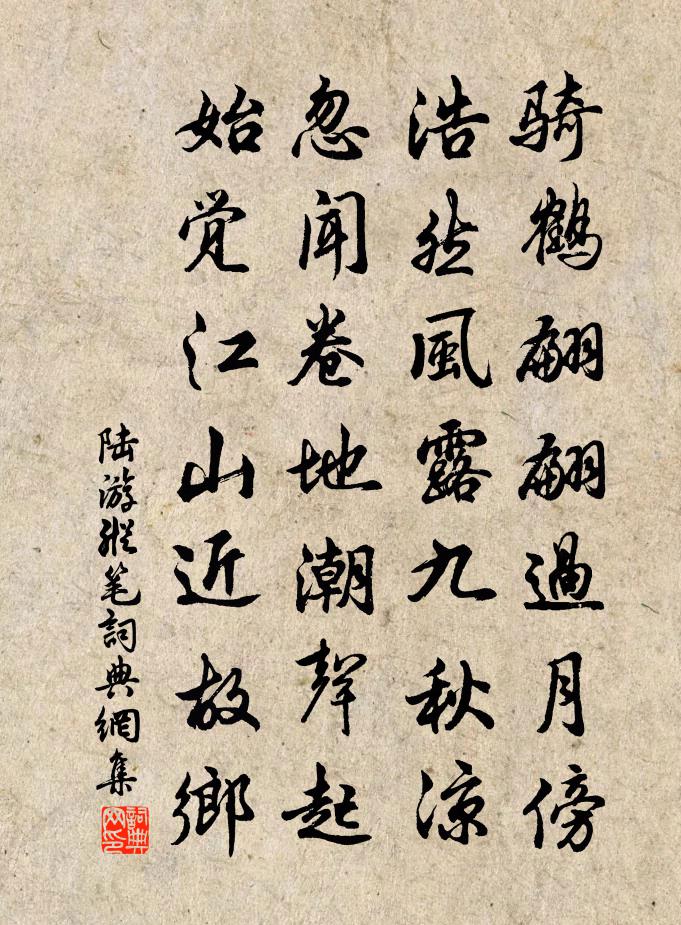 骑鹤翩翩過月傍
浩然風露九秋凉
忽闻卷地潮聲起
始觉江山近故鄉
陆游縱笔詞典網集
詞典网印